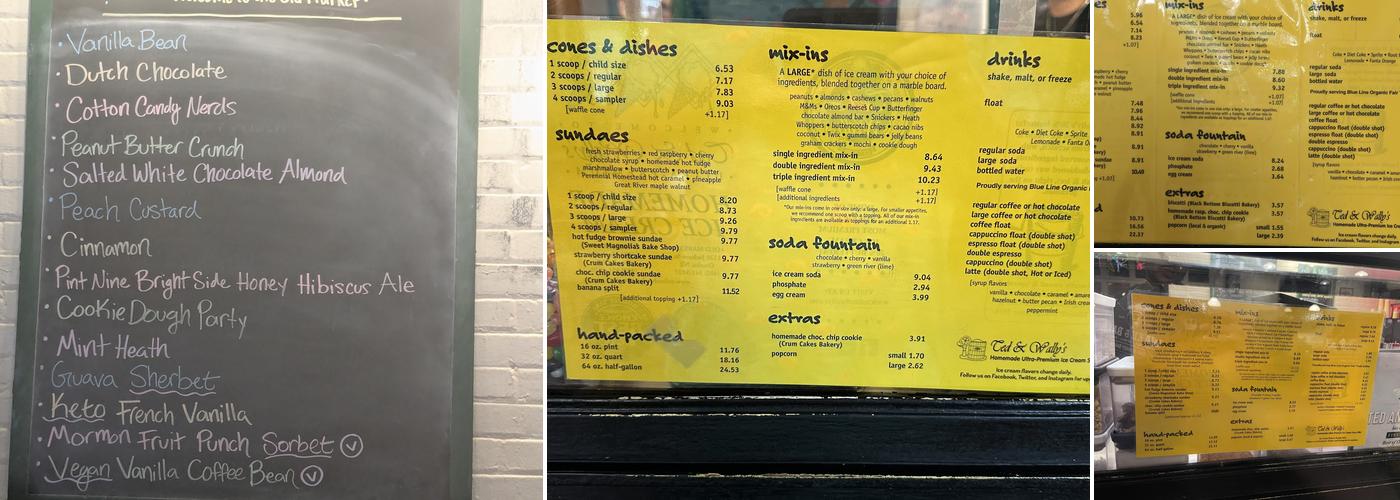 Welcome to the Old Market
Vanilla Bean
Dutch Chocolate
Cotton Candy Nerds
Peanut Butter Crunch
Salted White Chocolate Almond
Peach Custard
Cinnamon
Pint Nine Bright Side Honey Hibiscus Ale
Cookie Dough Party
Mint Heath
Guava Sherbet
Keto French Vanilla
Mormon Fruit Punch Sorbet V
Vegan Vanilla Coffee Bean V
cones & dishes
1 scoop / child size 6.53
2 scoops / regular 7.17
3 scoops / large 7.83
4 scoops / sampler 9.03
[waffle cone +1.17]
sundaes
fresh strawberries • red raspberry • cherry
chocolate syrup • homemade hot fudge
marshmallow • butterscotch • peanut butter
Perennial Homestead hot caramel • pineapple
Great River maple walnut
1 scoop / child size 8.20
2 scoops / regular 8.73
3 scoops / large 9.26
4 scoops / sampler 9.79
hot fudge brownie sundae 9.77
(Sweet Magnolia's Bake Shop)
strawberry shortcake sundae 9.77
(Crum Cakes Bakery)
choc. chip cookie sundae 9.77
(Crum Cakes Bakery)
banana split 11.52
[additional topping +1.17]
hand-packed
16 oz. pint 11.76
32 oz. quart 18.16
64 oz. half-gallon 24.53
mix-ins
A LARGE* dish of ice cream with your choice of
ingredients, blended together on a marble board.
peanuts • almonds • cashews • pecans • walnuts
M&Ms • Oreos • Reese's Cup • Butterfinger
chocolate almond bar • Snickers • Heath
Whoppers • butterscotch chips • cacao nibs
coconut • Twix • gummi bears • jelly beans
graham crackers • mochi • cookie dough
single ingredient mix-in 8.64
double ingredient mix-in 9.43
triple ingredient mix-in 10.23
[waffle cone +1.17]
[additional ingredients +1.17]
*Our mix-ins come in one size only: a large. For smaller appetites,
we recommend one scoop with a topping. All of our mix-in
ingredients are available as toppings for an additional 1.17.
soda fountain
chocolate • cherry • vanilla
strawberry • green river (lime)
ice cream soda 9.04
phosphate 2.94
egg cream 3.99
extras
homemade choc. chip cookie 3.91
(Crum Cakes Bakery)
popcorn small 1.70
large 2.62
drinks
shake, malt, or freeze
float
Coke • Diet Coke • Sprite
Lemonade • Fanta O
regular soda
large soda
bottled water
Proudly serving Blue Line Organic
regular coffee or hot chocolate
large coffee or hot chocolate
coffee float
cappuccino float (double shot)
espresso float (double shot)
double espresso
cappuccino (double shot)
latte (double shot, Hot or Iced)
[syrup flavors
vanilla • chocolate • caramel • amare
hazelnut • butter pecan • Irish crea
peppermint
Ted & Wally's
Homemade Ultra-Premium Ice Cream S
Ice cream flavors change daily.
Follow us on Facebook, Twitter, and Instagram for up
5.96
6.54
7.14
8.23
+1.07]
7.48
7.96
8.44
8.92
8.91
8.91
8.91
10.73
16.56
22.37
mix-ins
A LARGE* dish of ice cream with your choice of
ingredients, blended together on a marble board.
single ingredient mix-in 7.88
double ingredient mix-in 8.60
triple ingredient mix-in 9.32
[waffle cone +1.07]
[additional ingredients +1.07]
soda fountain
chocolate • cherry • vanilla
strawberry • green river (lime)
ice cream soda 8.24
phosphate 2.68
egg cream 3.64
extras
biscotti (Black Bottom Biscotti Bakery) 3.57
homemade rasp. choc. chip cookie 3.57
(Black Bottom Biscotti Bakery)
popcorn (local & organic) small 1.55
large 2.39
drinks
shake, malt, or freeze
float
Coke • Diet Coke • Sprite
Lemonade • Fanta Orange
regular soda
large soda
bottled water
Proudly serving Blue Line Organic Fair
regular coffee or hot chocolate
large coffee or hot chocolate
coffee float
cappuccino float (double shot)
espresso float (double shot)
double espresso
cappuccino (double shot)
latte (double shot)
[syrup flavors
Ted & Wally's
Homemade Ultra-Premium Ice Cream
Ice cream flavors change daily.
cones & dishes
sundaes
hand-packed
mix-ins
soda fountain
extras
drinks
Ted & Wally's